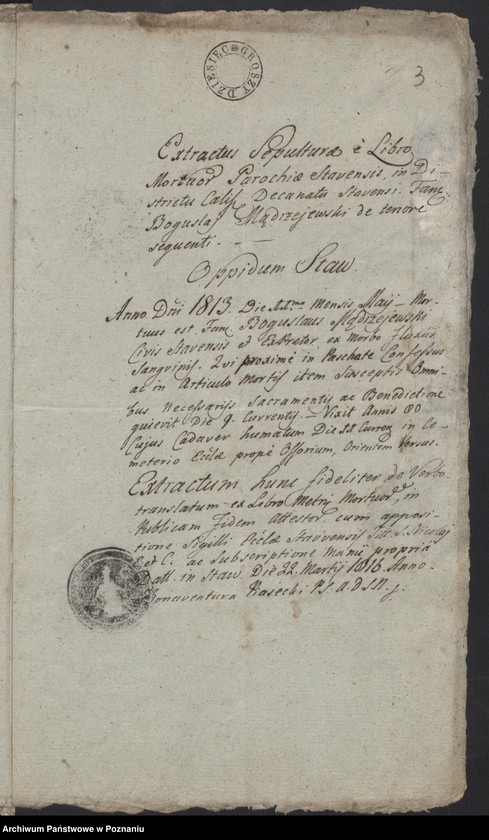 DZIESIĘC GROSZY
3
Extractus Sepulturæ è Libro
Mortuor Parochiæ Stavensis, in Di-
strictu Calis Decanatu Stavensi. Fam.
Boguslaj Mądrzejewski de tenore
sequenti. - -
Oppidum Staw.
Anno Dni 1813. Die mensis Maij - Mor-
tuus est Fam. Boguslaus Mądrzejewski
Civis Stavensis et ExPrator ex Morbo Fluxus
Sangvinis. Qvi proximè in Paschate Confessus
ac in Articulo Mortis item Susceptis Omni-
bus Necessarijs Sacramentis ac Benedictione
quievit Die 9. Currentis - Vixit Annis 80
Cujus Cadaver humatum Die Curren. in Cæ-
meterio Eccłæ propè Ossorium, Orientem Versus.
Extractum hunc fideliter de Verbo
translatum ex Libro Metri Mortuor, in
Publicam Fidem Attestor cum apposi-
tione Sigilli Eccłæ Stavensis Tit. S. Nicolaj
E et C. ac Subscriptione Manu propriâ
Dat. in Staw Die 22. Martij 1816. Anno.
Bonaventura Piasecki
Archiwum Państwowe w Poznaniu